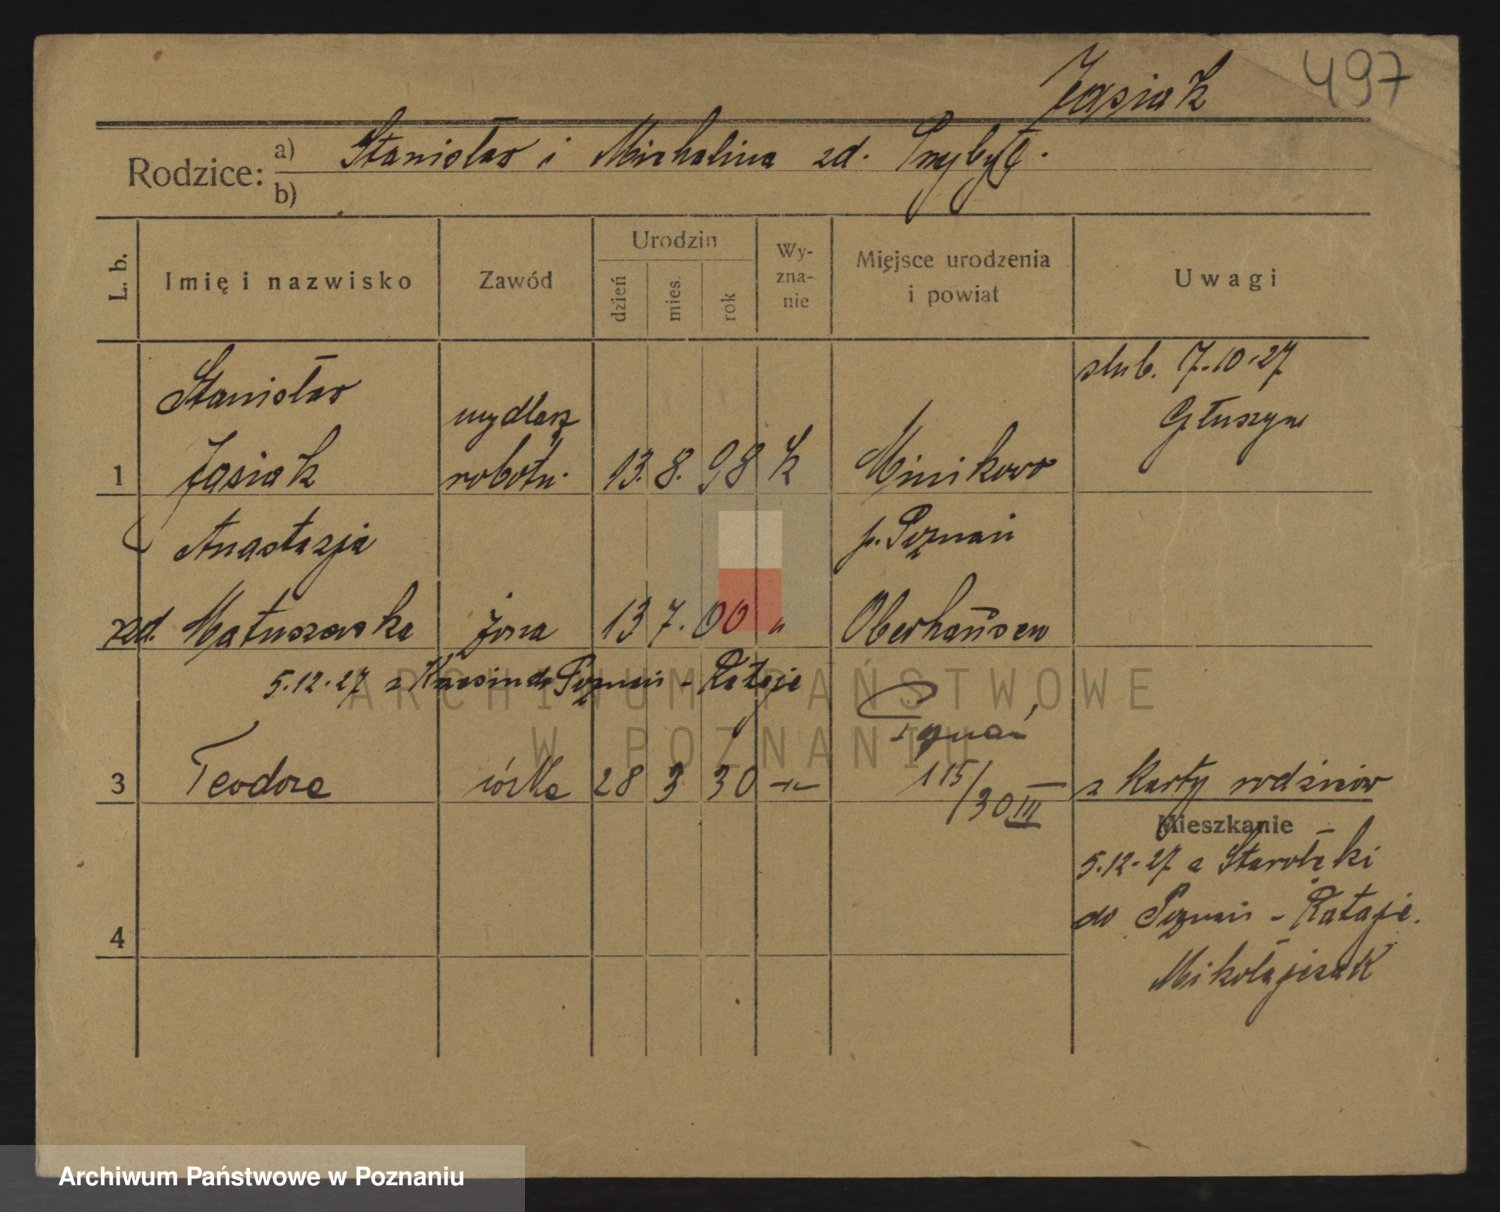 Jasiak 497
Rodzice: a) Stanisław i Michalina zd. Przybył.
b)
L. b. Imię i nazwisko Zawód Urodzin dzień mies. rok Wy-zna-nie Miejsce urodzenia i powiat Uwagi
Stanisław ślub. 7.10.27
mydlarz Głuszyna
1 Jasiak robotn. 13. 8. 98 k Minikowo
Anastazja p. Poznań
zd. Matuszewska żona 13 7. 00 " Oberhausen
5.12.27 z do Poznań - Rataje
Poznań
3 Teodora córka 28 3 30 -"- 115/30 III z karty rodziców
Mieszkanie
5.12.27 z Starołęki
4 do Poznań - Rataje.
Mikołajczak
ARCHIWUM PAŃSTWOWE
W POZNANIU
Archiwum Państwowe w Poznaniu